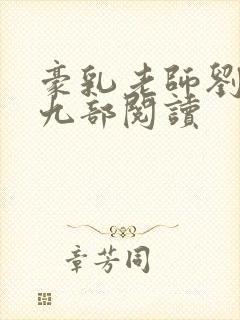 豪乳老師劉
九部閱讀
章芳同